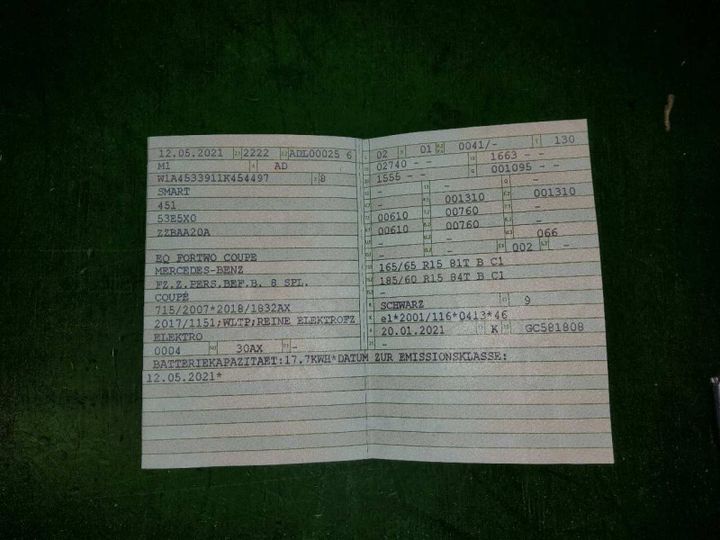 12.05.2021 2222 ADL00025 6
M1 AD
W1A4533911K454497 8
SMART
451
53E5X0
ZZBAA20A
EQ FORTWO COUPE
MERCEDES-BENZ
FZ.Z.PERS.BEF.B. 8 SPL.
COUPÉ
715/2007*2018/1832AX
2017/1151;WLTP;REINE ELEKTROFZ
ELEKTRO
0004 30AX -
BATTERIEKAPAZITAET:17.7KWH*DATUM ZUR EMISSIONSKLASSE:
12.05.2021*
02 01 0041/- 130
02740 - - 1663 - -
1555 - - 001095 - -
- - -
- 001310 001310
00610 00760 -
00610 00760 -
- - 066
- - 002 -
165/65 R15 81T B C1
185/60 R15 84T B C1
-
SCHWARZ 9
e1*2001/116*0413*46
20.01.2021 K GC581808
-